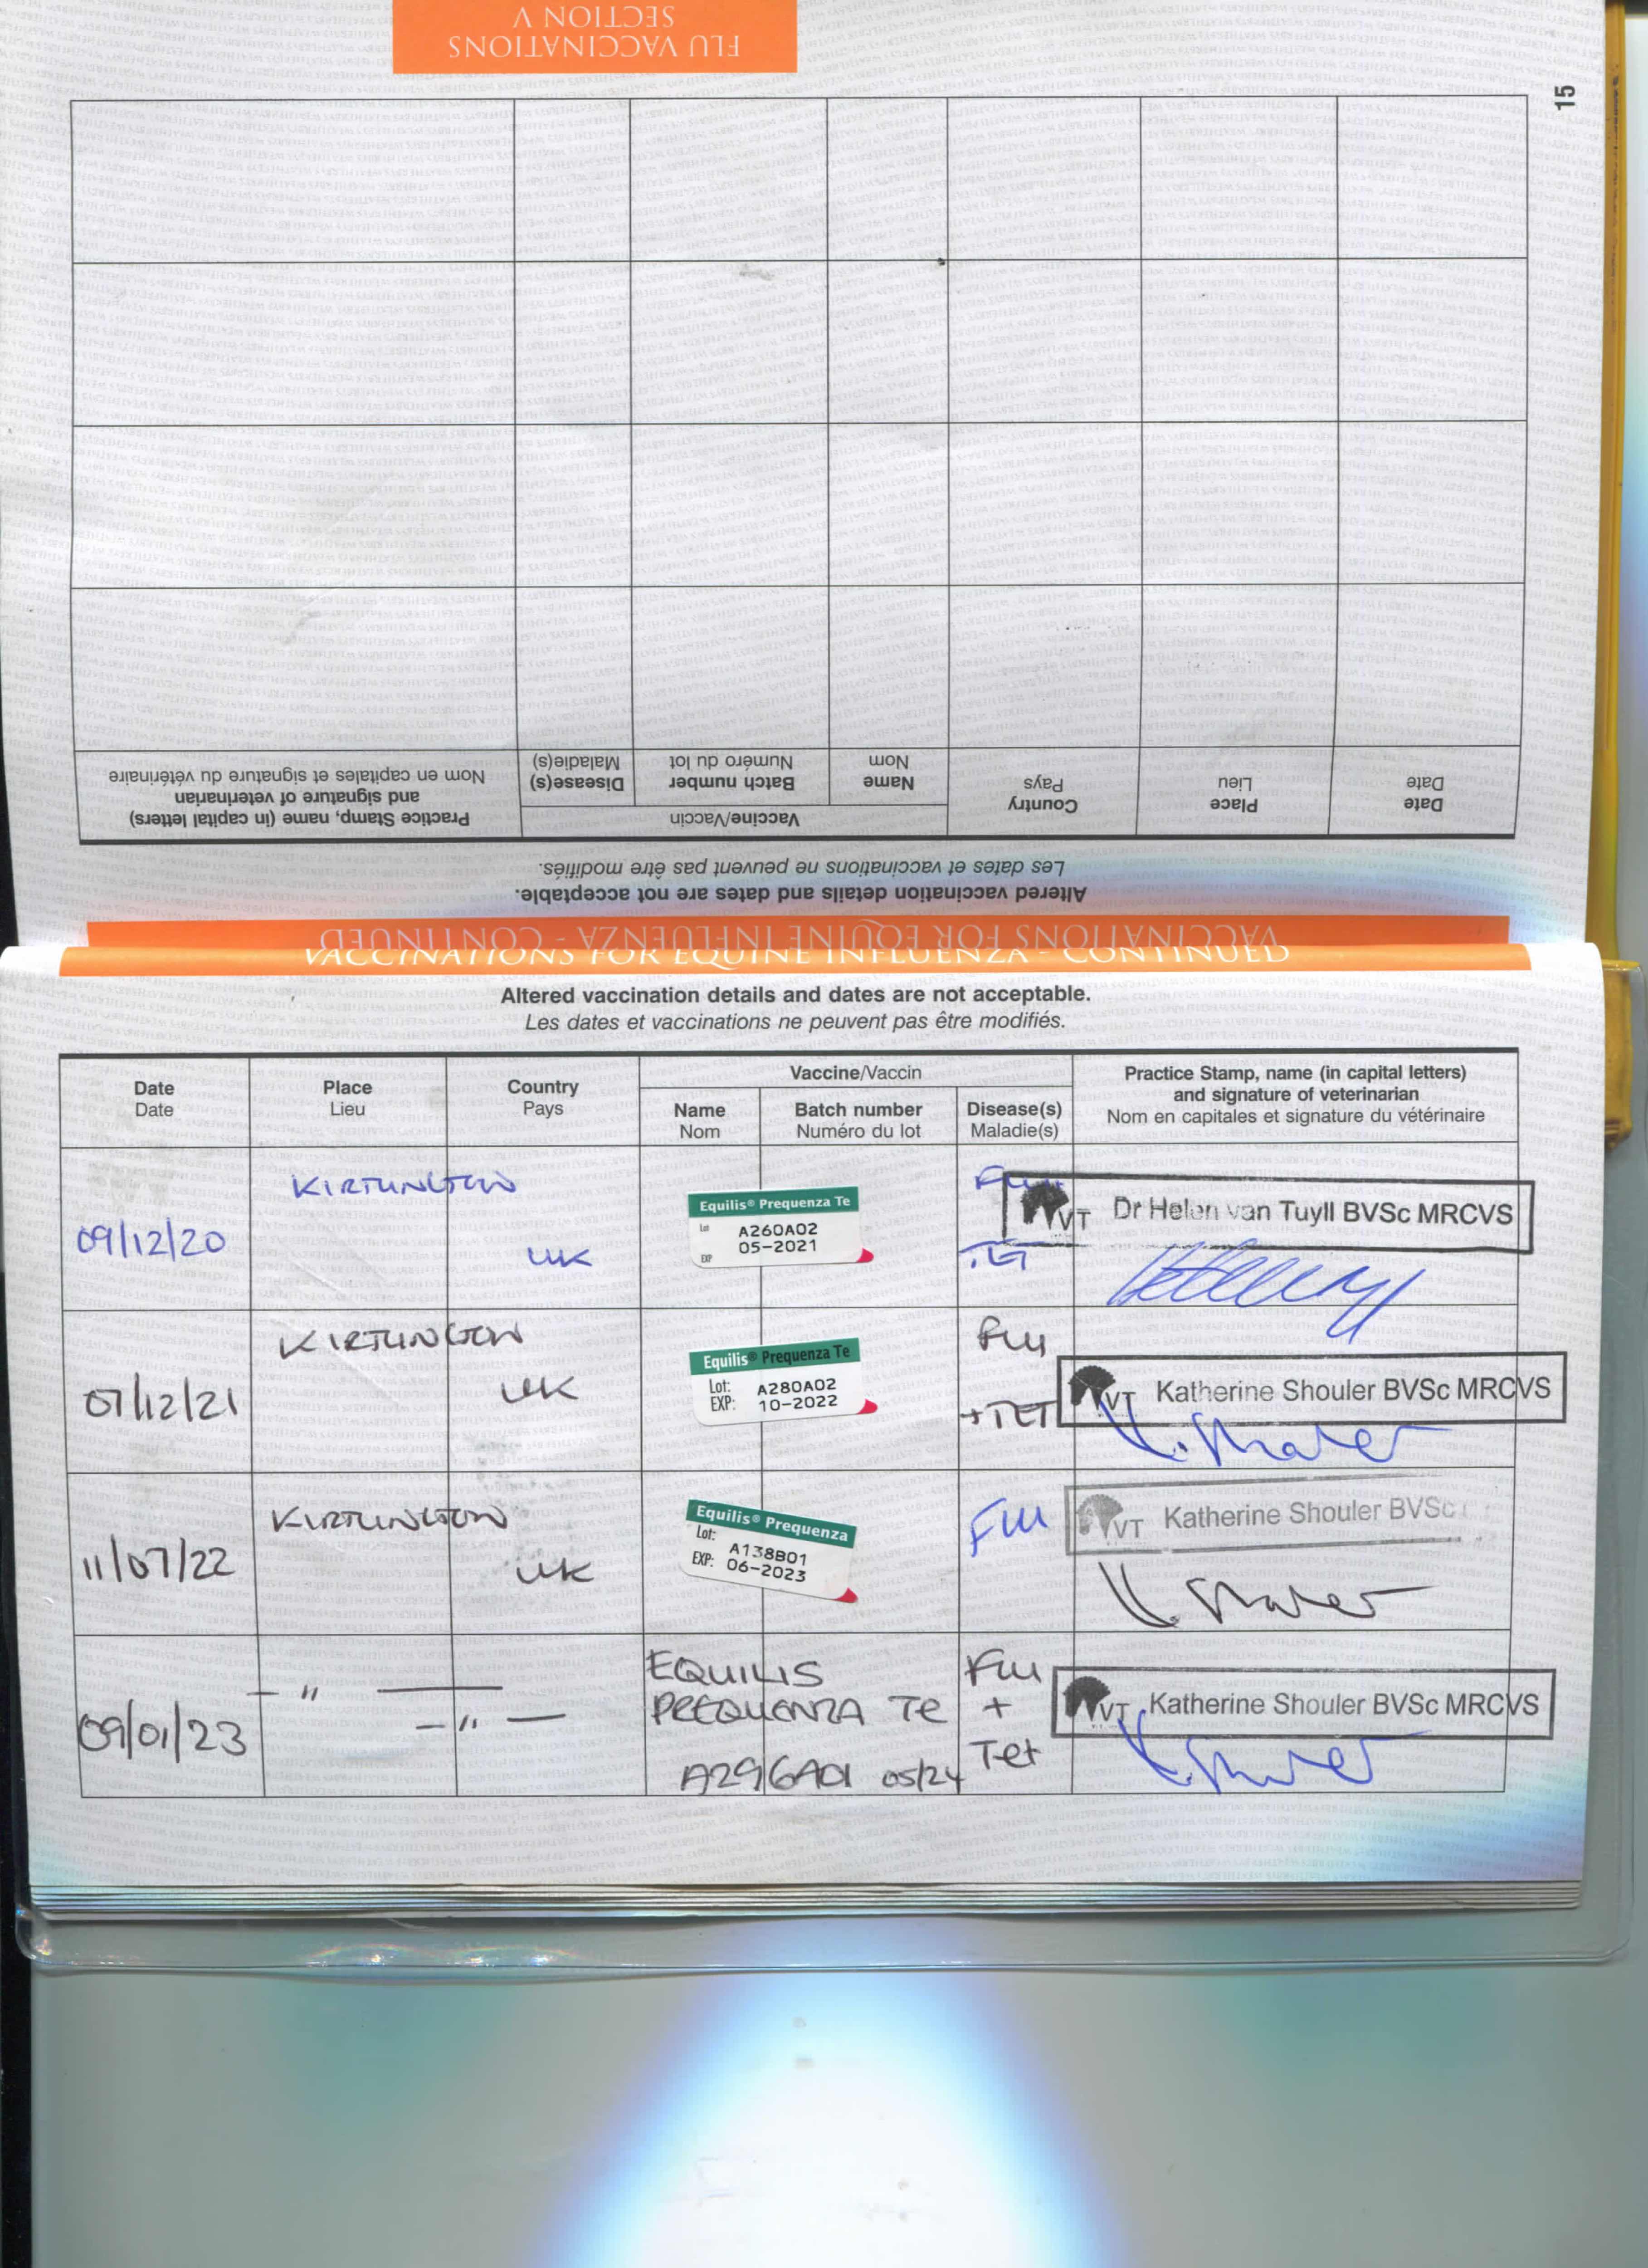 FLU VACCINATIONS
SECTION V
15
Practice Stamp, name (in capital letters)
and signature of veterinarian
Nom en capitales et signature du vétérinaire
Vaccine/Vaccin
Disease(s)
Maladie(s)
Batch number
Numéro du lot
Name
Nom
Country
Pays
Place
Lieu
Date
Date
Altered vaccination details and dates are not acceptable.
Les dates et vaccinations ne peuvent pas être modifiés.
VACCINATIONS FOR EQUINE INFLUENZA - CONTINUED
VACCINATIONS FOR EQUINE INFLUENZA - CONTINUED
Altered vaccination details and dates are not acceptable.
Les dates et vaccinations ne peuvent pas être modifiés.
Date
Date
Place
Lieu
Country
Pays
Vaccine/Vaccin
Name
Nom
Batch number
Numéro du lot
Disease(s)
Maladie(s)
Practice Stamp, name (in capital letters)
and signature of veterinarian
Nom en capitales et signature du vétérinaire
09/12/20
KIRTLINGTON
UK
Equilis® Prequenza Te
Lot A260A02
EXP 05-2021
Flu
VT Dr Helen van Tuyll BVSc MRCVS
07/12/21
KIRTLINGTON
UK
Equilis® Prequenza Te
Lot: A280A02
EXP: 10-2022
Flu
+TET
VT Katherine Shouler BVSc MRCVS
K. Shouler
11/07/22
KIRTLINGTON
UK
Equilis® Prequenza
Lot: A138B01
EXP: 06-2023
Flu
VT Katherine Shouler BVSc
K. Shouler
09/01/23
- " -
- " -
EQUILIS
PREQUENZA Te
A296A01 05/24
Flu
+
Tet
VT Katherine Shouler BVSc MRCVS
K. Shouler